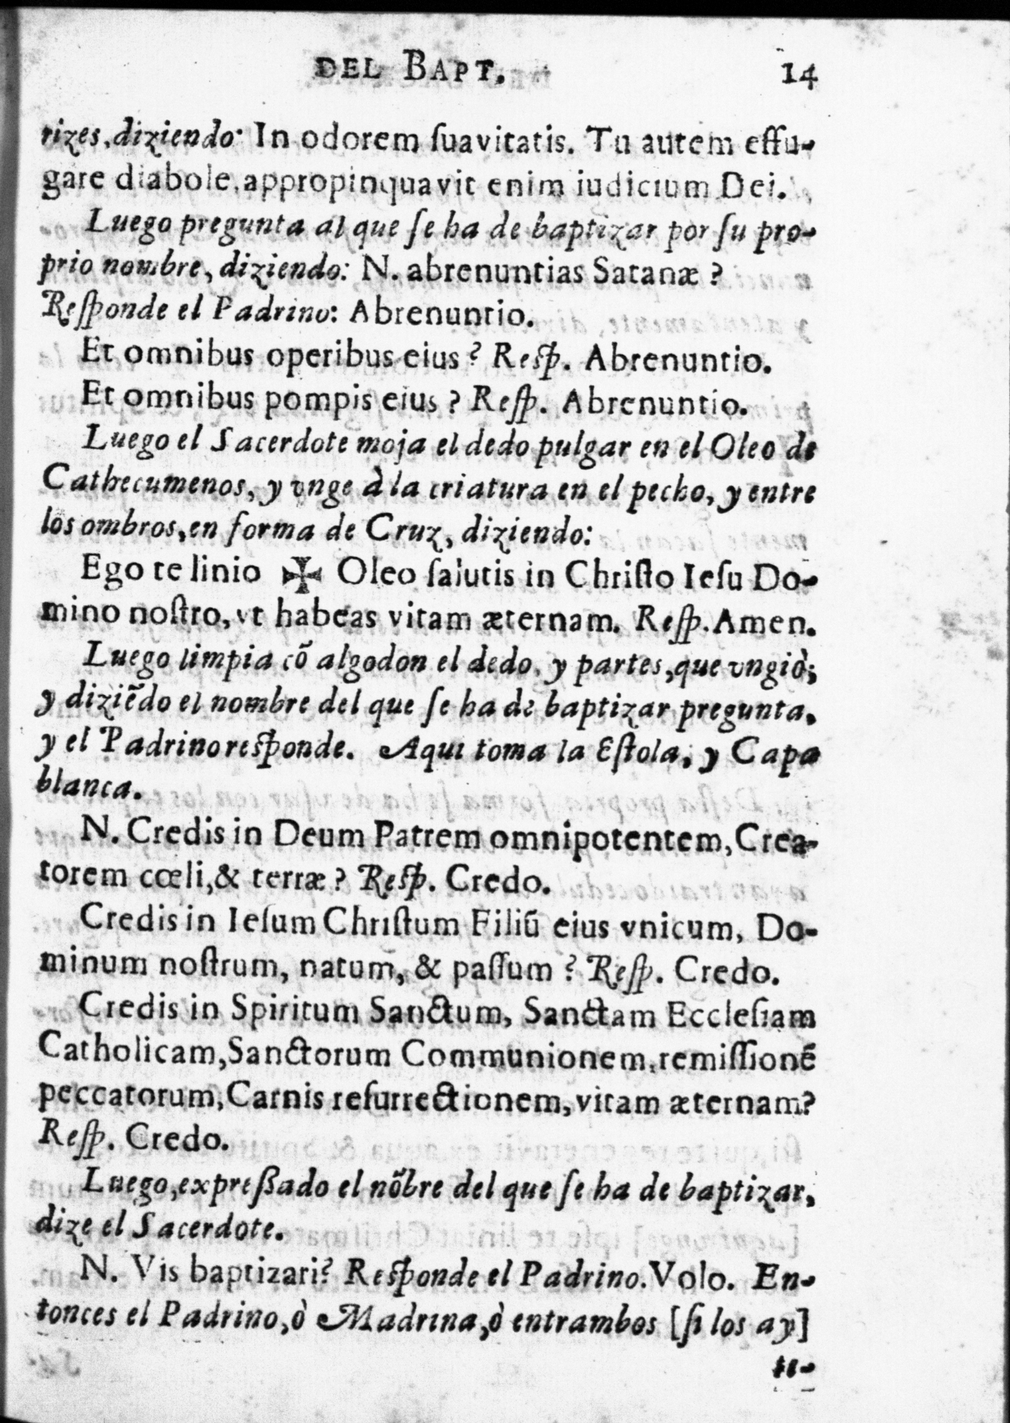 DEL BAPT. 14
rizes, diziendo: In odorem ſuavitatis. Tu autem effu-
gare diabole, appropinquavit enim iudicium Dei.
Luego pregunta al que ſe ha de baptizar por ſu pro-
prio nombre, diziendo: N. abrenuntias Satanæ ?
Reſponde el Padrino: Abrenuntio.
Et omnibus operibus eius ? Reſp. Abrenuntio.
Et omnibus pompis eius ? Reſp. Abrenuntio.
Luego el Sacerdote moja el dedo pulgar en el Oleo de
Cathecumenos, y vnge à la criatura en el pecho, y entre
los ombros, en forma de Cruz, diziendo:
Ego te linio ✠ Oleo ſalutis in Chriſto Ieſu Do-
mino noſtro, vt habeas vitam æternam. Reſp. Amen.
Luego limpia cõ algodon el dedo, y partes, que vngiò;
y diziẽdo el nombre del que ſe ha de baptizar pregunta,
y el Padrino reſponde. Aqui toma la Eſtola, y Capa
blanca.
N. Credis in Deum Patrem omnipotentem, Crea-
torem cœli, & terræ ? Reſp. Credo.
Credis in Ieſum Chriſtum Filiũ eius vnicum, Do-
minum noſtrum, natum, & paſſum ? Reſp. Credo.
Credis in Spiritum Sanctum, Sanctam Eccleſiam
Catholicam, Sanctorum Communionem, remiſſionẽ
peccatorum, Carnis reſurrectionem, vitam æternam?
Reſp. Credo.
Luego, expreßado el nõbre del que ſe ha de baptizar,
dize el Sacerdote.
N. Vis baptizari? Reſponde el Padrino. Volo. En-
tonces el Padrino, ò Madrina, ò entrambos [ſi los ay]
te-